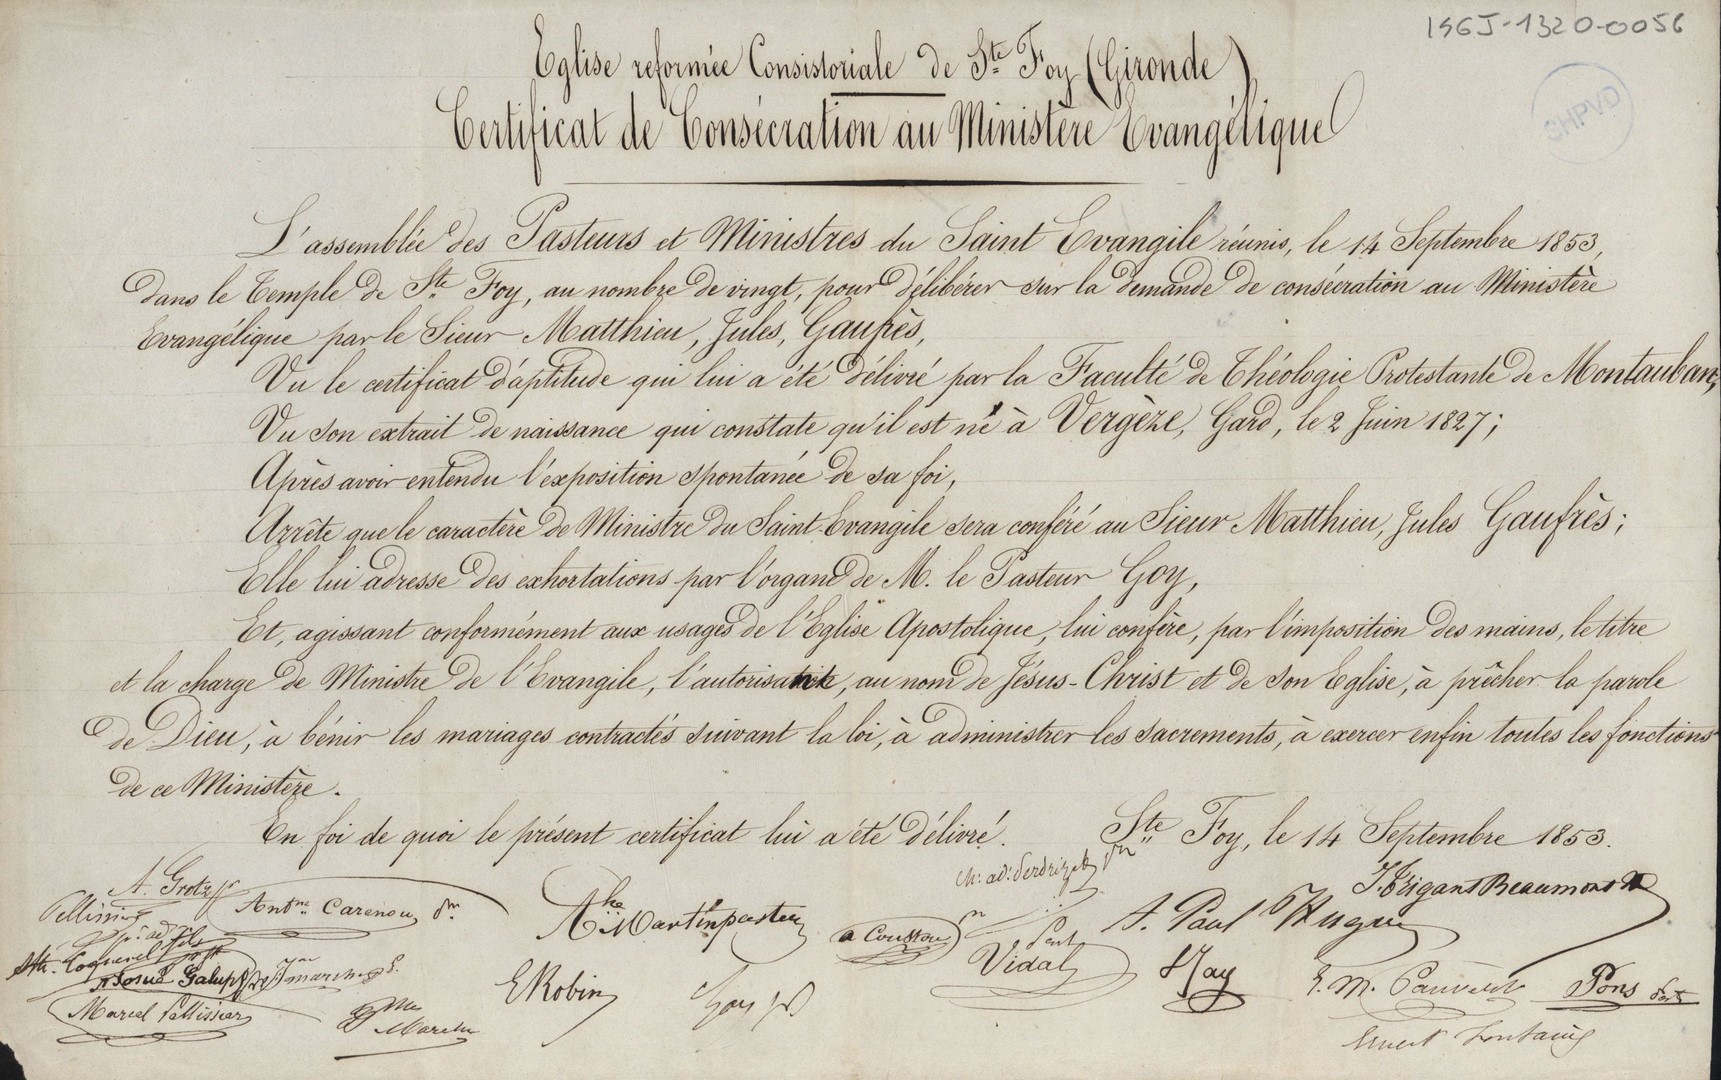 1SGJ-1320-0056
SHPVD
Eglise reformée Consistoriale de Ste Foy (Gironde)
Certificat de Consécration au Ministère Evangélique
L'assemblée des Pasteurs et Ministres du Saint Evangile réunis, le 14 Septembre 1853,
dans le Temple de Ste Foy, au nombre de vingt, pour délibérer sur la demande de consécration au Ministère
Evangélique par le Sieur Matthieu, Jules, Gaufrès,
Vu le certificat d'aptitude qui lui a été délivré par la Faculté de Théologie Protestante de Montauban,
Vu son extrait de naissance qui constate qu'il est né à Vergèze, Gard, le 2 Juin 1827;
Après avoir entendu l'exposition spontanée de sa foi,
Arrête que le caractère de Ministre du Saint-Evangile sera conféré au Sieur Matthieu, Jules Gaufrès;
Elle lui adresse des exhortations par l'organe de M. le Pasteur Goy,
Et, agissant conformément aux usages de l'Eglise Apostolique, lui confère, par l'imposition des mains, le titre
et la charge de Ministre de l'Evangile, l'autorisant, au nom de Jésus-Christ et de son Eglise, à prêcher la parole
de Dieu, à bénir les mariages contractés suivant la loi, à administrer les sacrements, à exercer enfin toutes les fonctions
de ce Ministère.
En foi de quoi le présent certificat lui a été délivré. Ste Foy, le 14 Septembre 1853.
A. Grotz pr
Pellissier
Antne Carenou
Ath. Coquerel fils
Josué Galup
Marcel Pellissier
Ake Martin pasteur
E Robin
Goy
A Coustou
Vidal
A. Paul Hugues
May
Trigant Beaumont
Pons
Ernest Fontaine